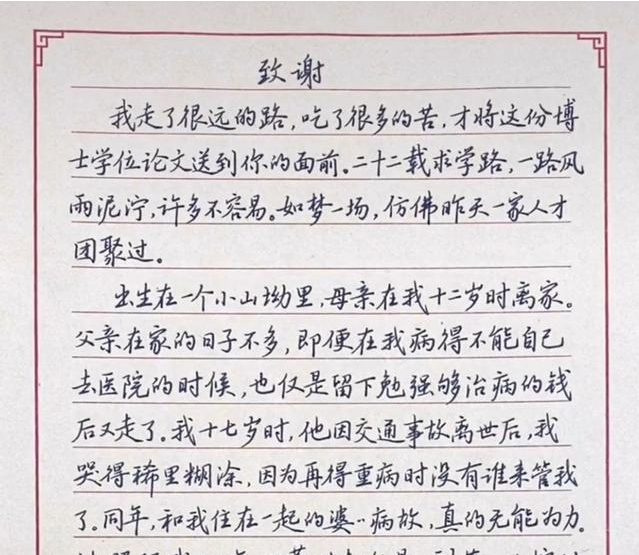 致谢
我走了很远的路，吃了很多的苦，才将这份博
士学位论文送到你的面前。二十二载求学路，一路风
雨泥泞，许多不容易。如梦一场，仿佛昨天一家人才
团聚过。
出生在一个小山坳里，母亲在我十二岁时离家。
父亲在家的日子不多，即便在我病得不能自己
去医院的时候，也仅是留下勉强够治病的钱
后又走了。我十七岁时，他因交通事故离世后，我
哭得稀里糊涂，因为再得重病时没有谁来管我
了。同年，和我住在一起的婆〻病故，真的无能为力。